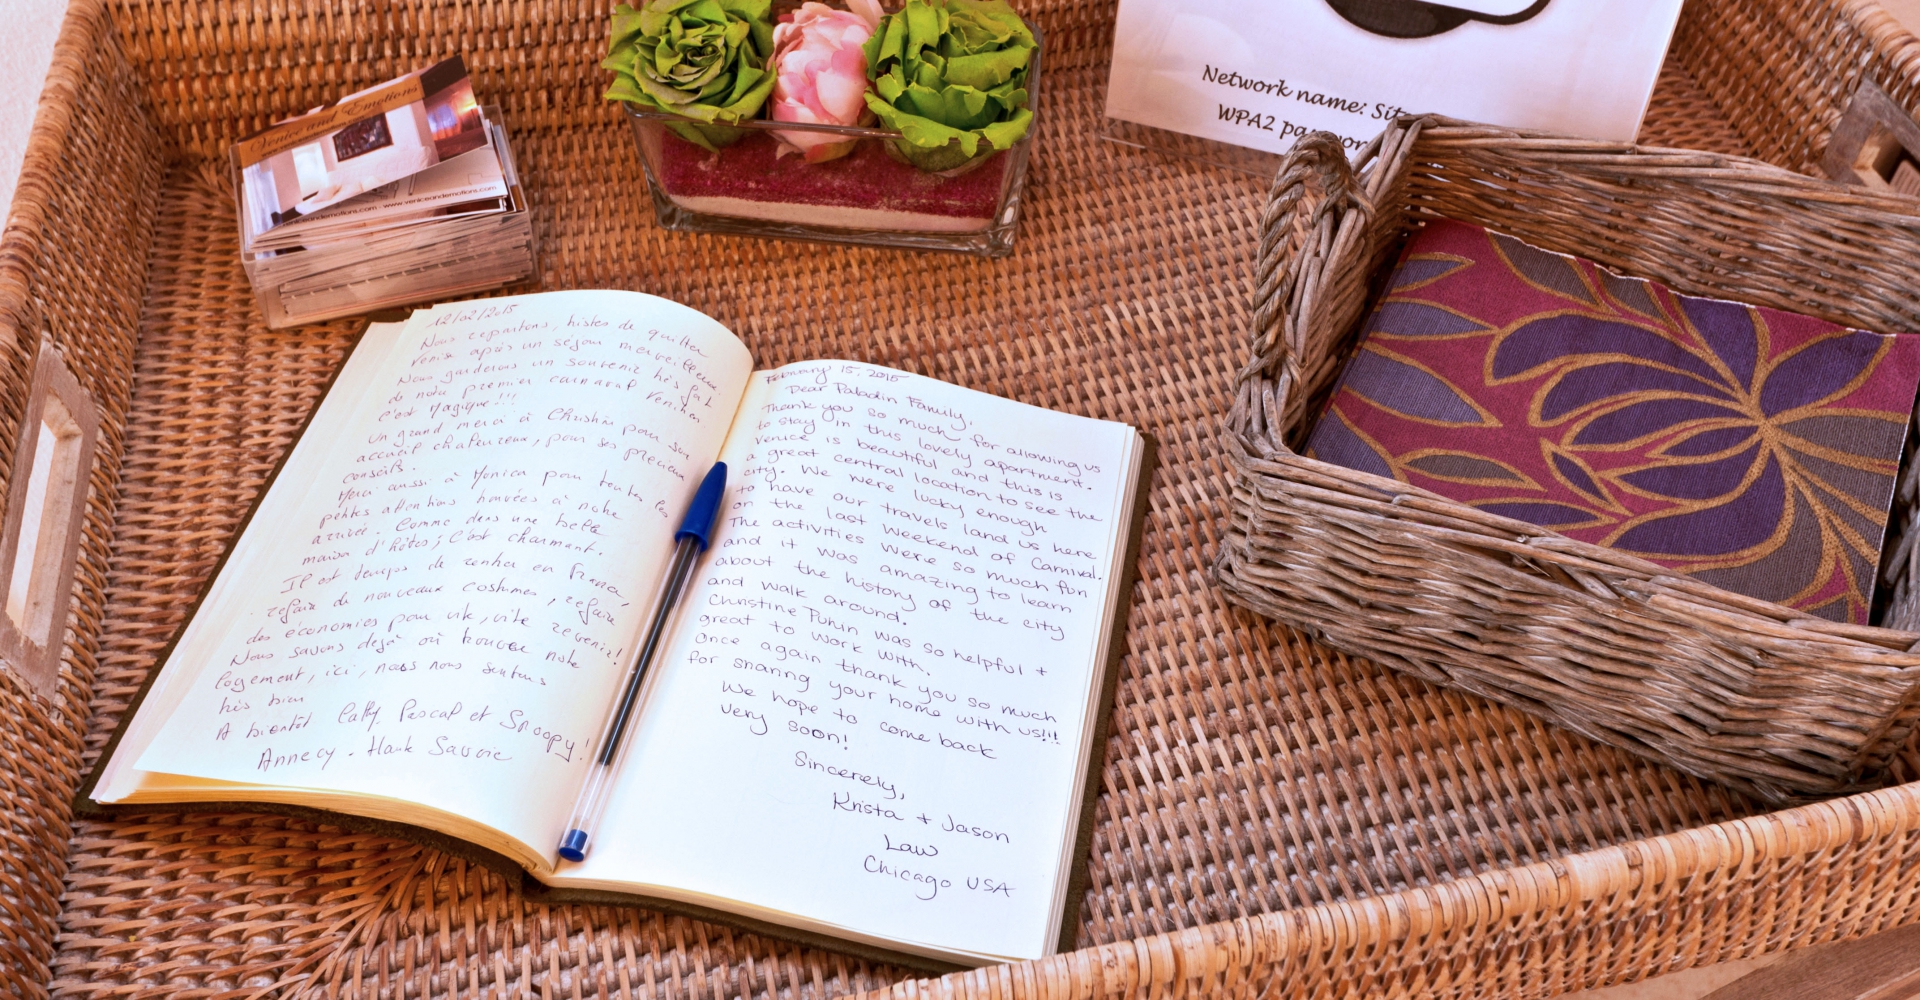 Venice and Emotions
www.veniceandemotions.com
Network name: Sit
WPA2 passwor
12/02/2015
Nous repartons, tristes de quitter
Venise après un séjour merveilleux.
Nous garderons un souvenir très fort
de notre premier carnaval Vénitien.
c'est Magique!!!
Un grand merci à Christine pour son
accueil chaleureux, pour ses précieux
conseils.
Merci aussi à Monica pour toutes les
petites attentions trouvées à notre
arrivée. Comme dans une belle
maison d'hôtes; c'est charmant.
Il est temps de rentrer en France,
refaire de nouveaux costumes, refaire
des économies pour vite, vite revenir!
Nous savons déjà où trouver notre
logement, ici, nous nous sentons
très bien
A bientôt Cathy, Pascal et Snoopy!
Annecy. Haute Savoie
February 15, 2015
Dear Paladin Family,
Thank you so much for allowing us
to stay in this lovely apartment.
Venice is beautiful and this is
a great central location to see the
city. We were lucky enough
to have our travels land us here
on the last weekend of Carnival.
The activities were so much fun
and it was amazing to learn
about the history of the city
and walk around.
Christine was so helpful +
great to work with.
Once again thank you so much
for sharing your home with us!!!
We hope to come back
very soon!
Sincerely,
Krista + Jason
Law
Chicago USA